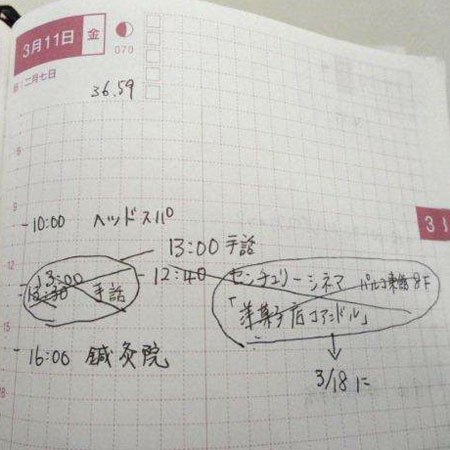 3月11日 金
070
旧:二月七日
36.59
9
10:00 ヘッドスパ
13:00 手話
12
13:00
12:30 手話
12:40 センチュリーシネマ パルコ東館8F
「洋菓子店コアンドル」
15
16:00 鍼灸院
3/18に
18
3